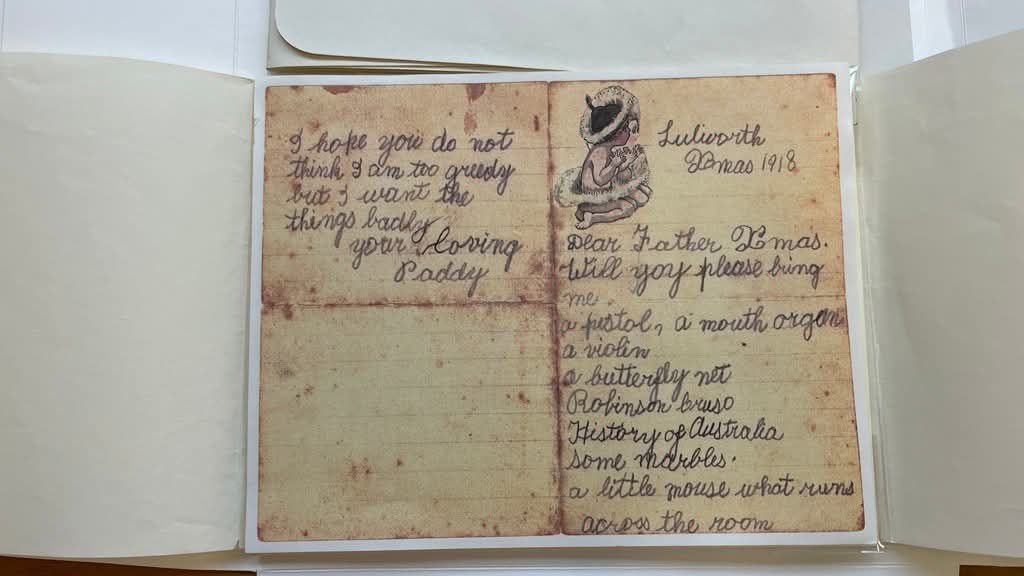 Lulworth
Xmas 1918
Dear Father Xmas.
Will yoy please bring
me
a pistol, a mouth organ
a violin
a butterfly net
Robinson Cruso
History of Australia
some marbles.
a little mouse what runs
across the room
I hope you do not
think I am too greedy
but I want the
things badly
your loving
Paddy